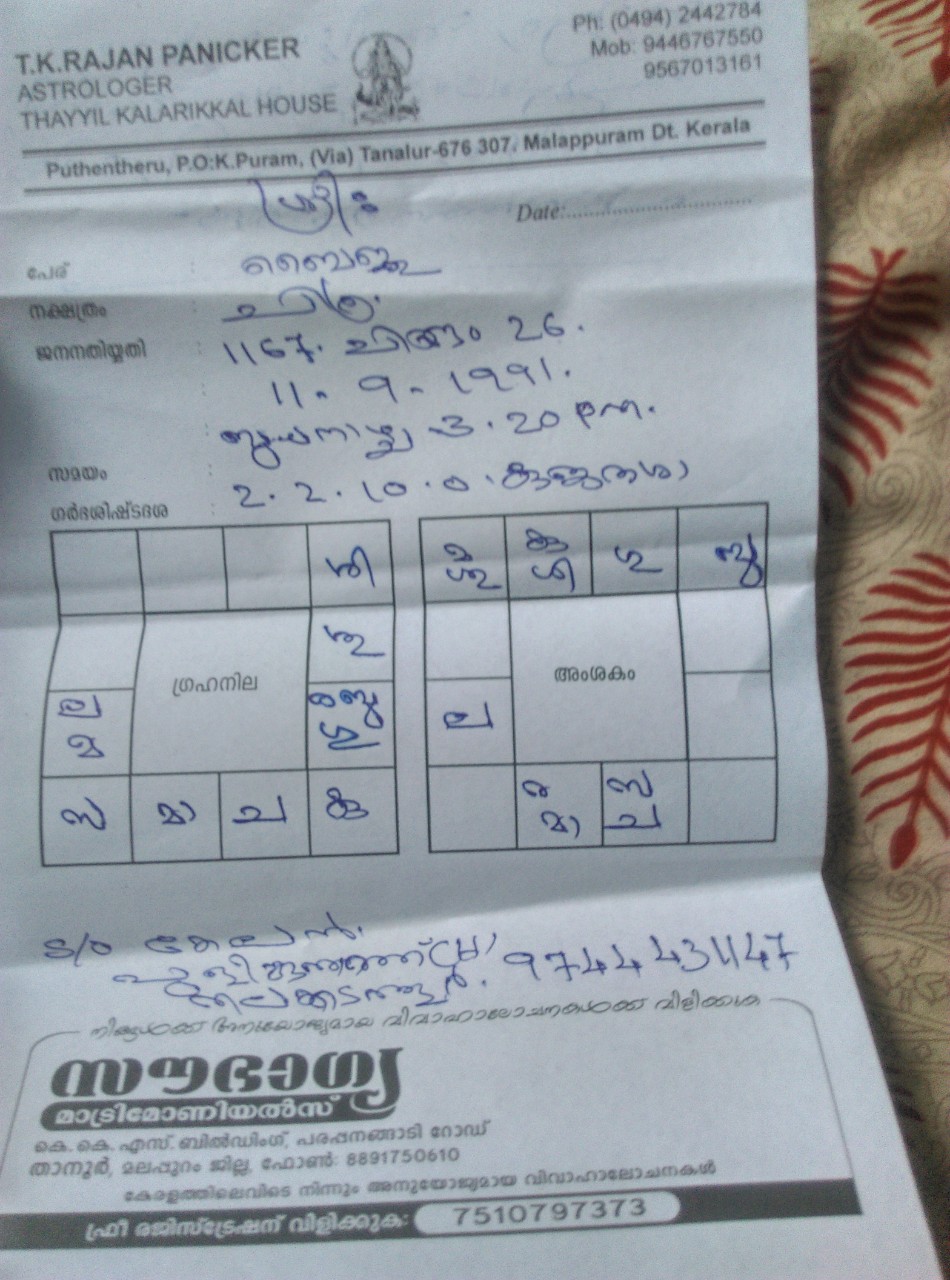 T.K.RAJAN PANICKER
ASTROLOGER
THAYYIL KALARIKKAL HOUSE
Ph: (0494) 2442784
Mob: 9446767550
9567013161
Puthentheru, P.O:K.Puram, (Via) Tanalur-676 307, Malappuram Dt. Kerala
ശ്രീഃ
Date:
പേര് : ബൈജു
നക്ഷത്രം : ചിത്ര.
ജനനതിയ്യതി : 1167. ചിങ്ങം 26.
: 11. 9. 1991.
: ബുധനാഴ്ച 3.20 pm.
സമയം :
ഗർഭശിഷ്ടദശ : 2.2.10.0. കുജദശാ
ശി
ഗ്രഹനില
ല
മ
ബു
സ മാ ച കു
ബു
അംശകം
ല
മാ
സ
ച
S/o വേലൻ.
9744431147
നിങ്ങൾക്ക് അനുയോജ്യമായ വിവാഹാലോചനകൾക്ക് വിളിക്കുക
സൗഭാഗ്യ
മാട്രിമോണിയൽസ്
കെ. കെ. എസ്. ബിൽഡിംഗ്, പരപ്പനങ്ങാടി റോഡ്
താനൂർ, മലപ്പുറം ജില്ല, ഫോൺ: 8891750610
കേരളത്തിലെവിടെ നിന്നും അനുയോജ്യമായ വിവാഹാലോചനകൾ
ഫ്രീ രജിസ്ട്രേഷന് വിളിക്കുക: 7510797373